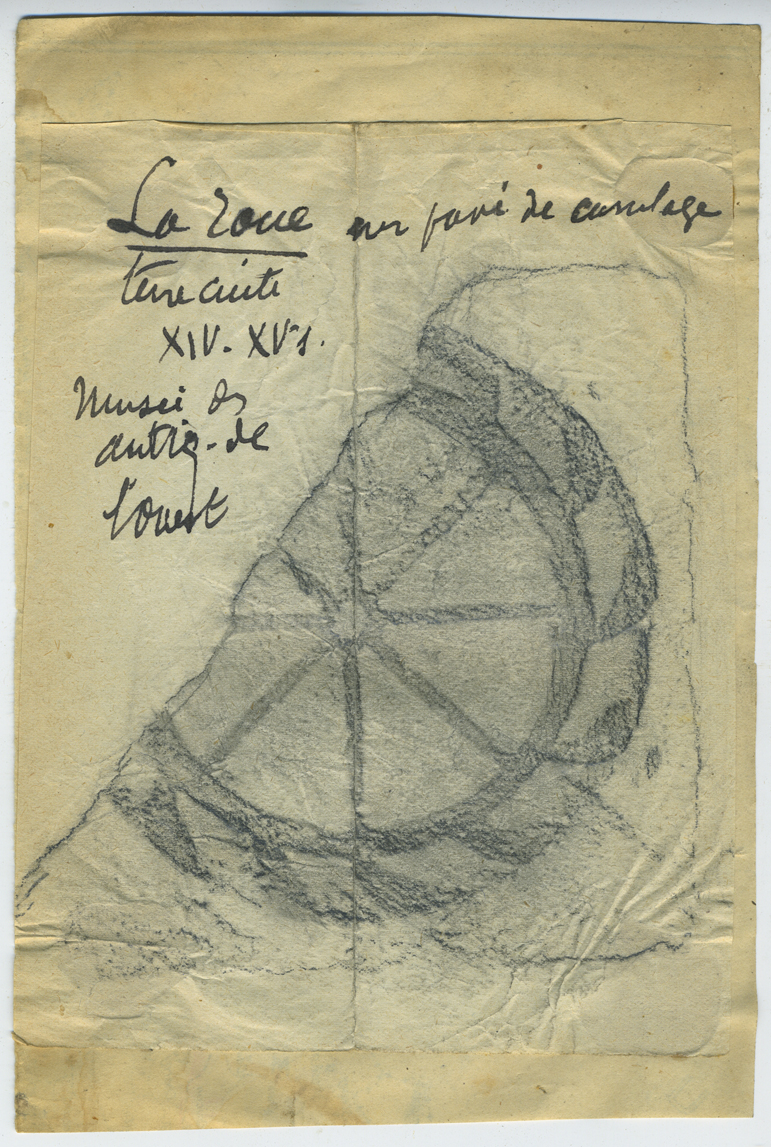 La roue sur pavé de carrelage
terre cuite
XIV. XVs.
Musée des
antiq. de
l'ouest